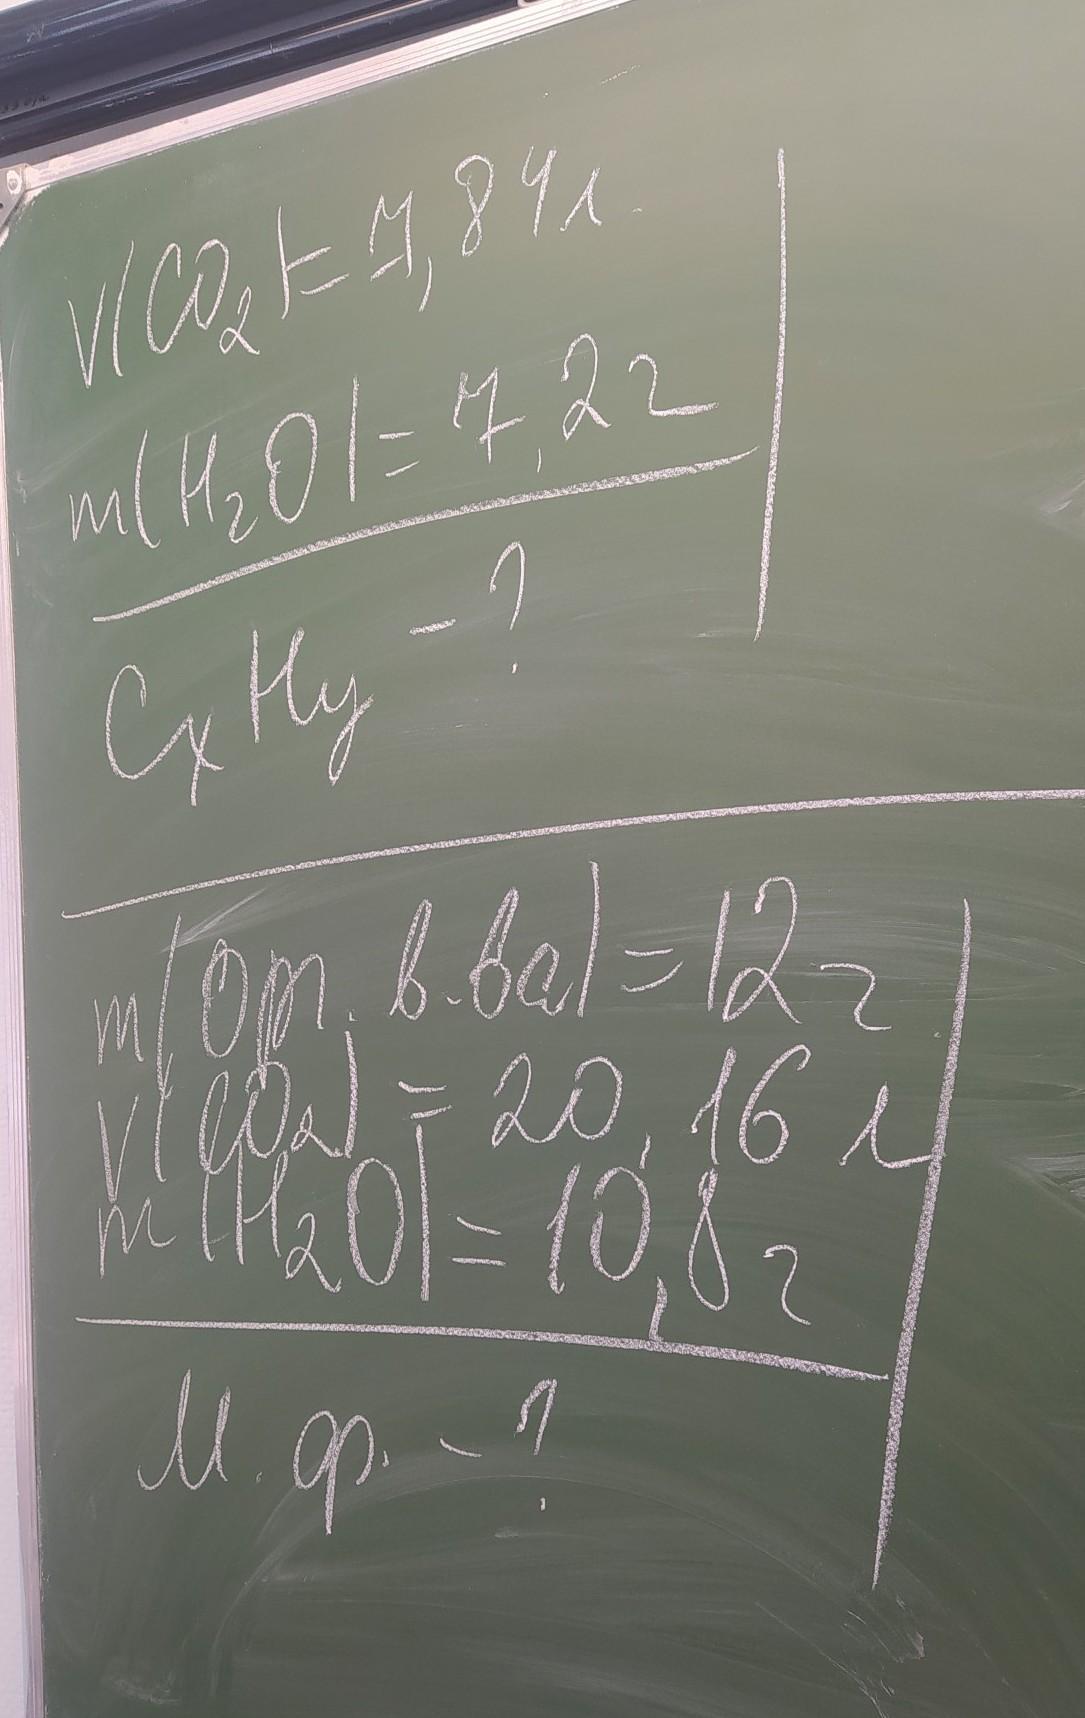 V(CO2) = 7,84л.
m(H2O) = 7,2г
CxHy - ?
m(Ор. в.ва) = 12г
V(CO2) = 20,16 л
m(H2O) = 10,8г
М.ф. - ?